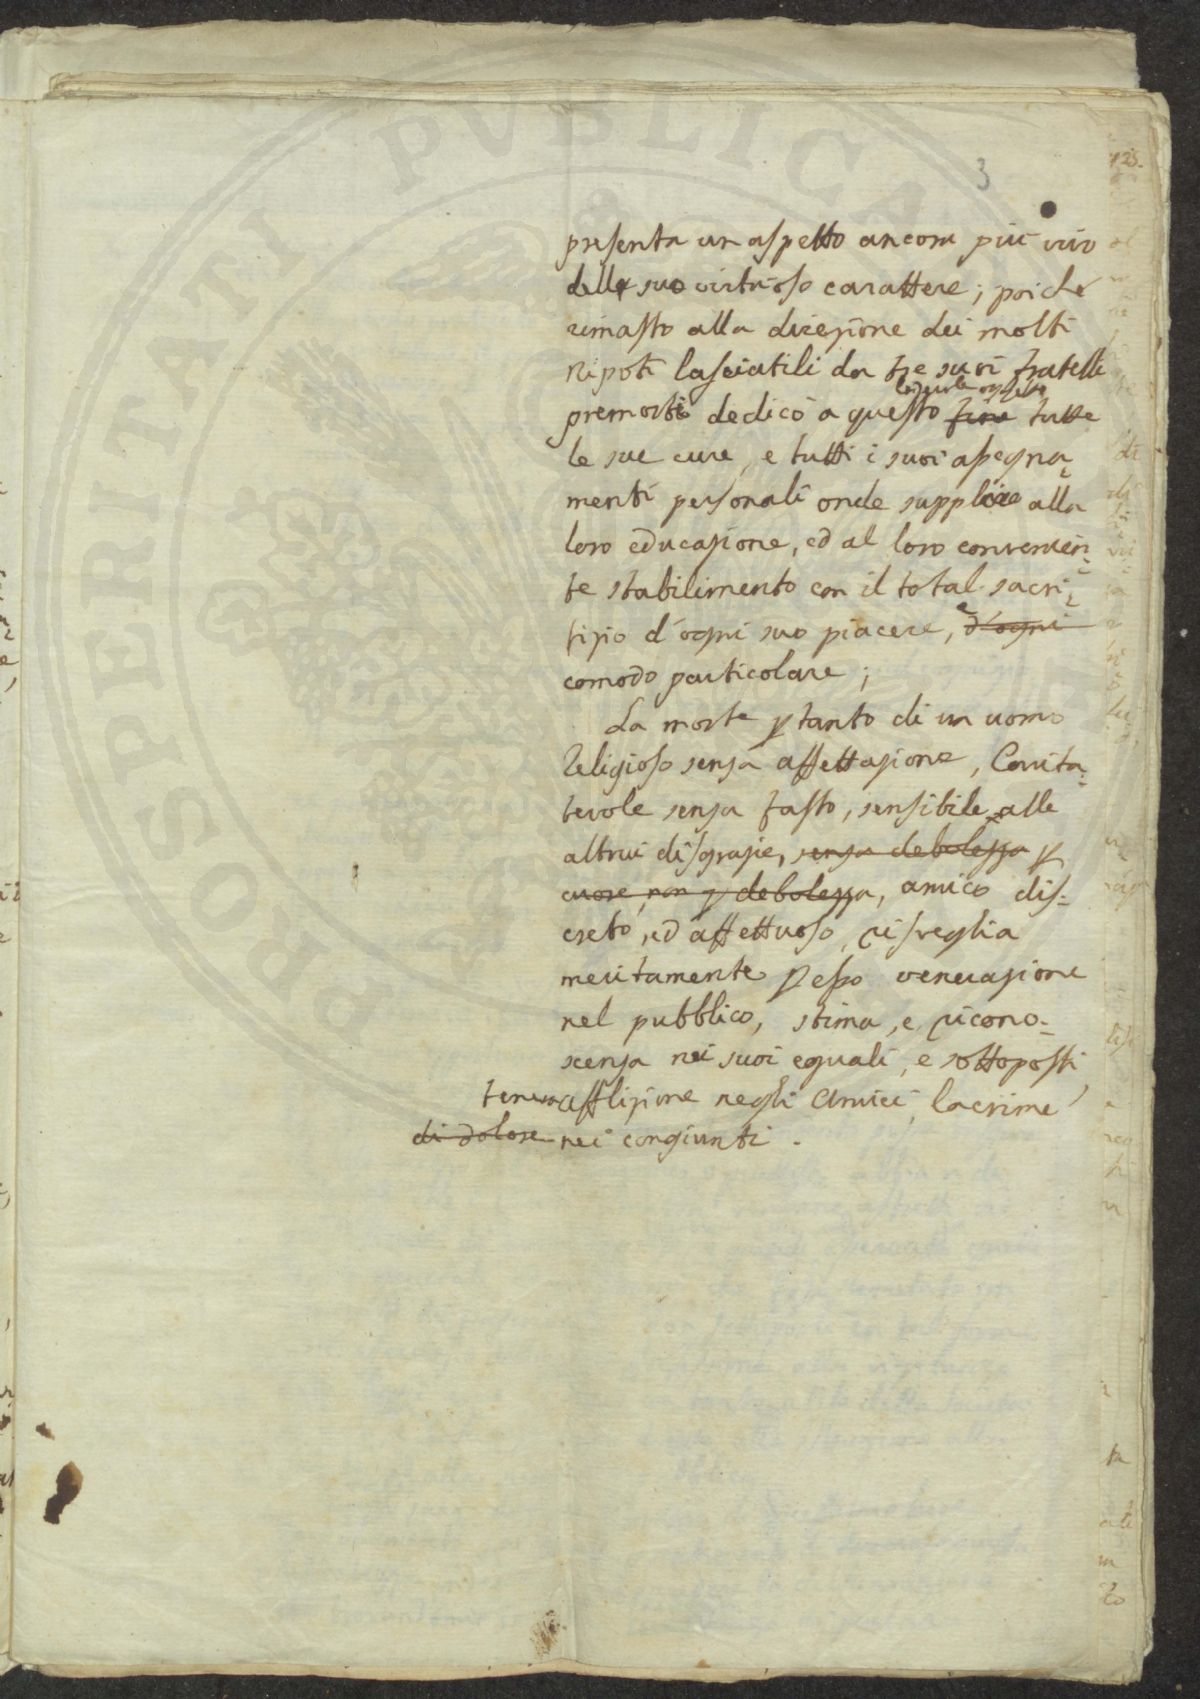 3
presenta un aspetto ancora più vivo
della suo virtuoso carattere; poiché
rimasto alla direzione dei molti
Nipoti lasciatili da tre suoi fratelli
premorti dedicò a questo fine tutte
le sue cure, e tutti i suoi assegna=
menti personali onde supplire alla
loro educazione, ed al loro convenien=
te stabilimento con il total sacri=
fizio d'ogni suo piacere, e d'ogni
comodo particolare;
La morte ptanto di un uomo
Religioso senza affettazione, Carita=
tevole senza fasto, sensibile alle
altrui disgrazie, senza debolezza p
cuore, non p debolezza, amico dis=
creto, ed affettuoso, risveglia
meritamente p esso venerazione
nel pubblico, stima, e ricono=
scenza nei suoi eguali, e sottoposti
tenera afflizione negli Amici, lacrime
di dolore nei congiunti.
POSTERITATI PVBLICA